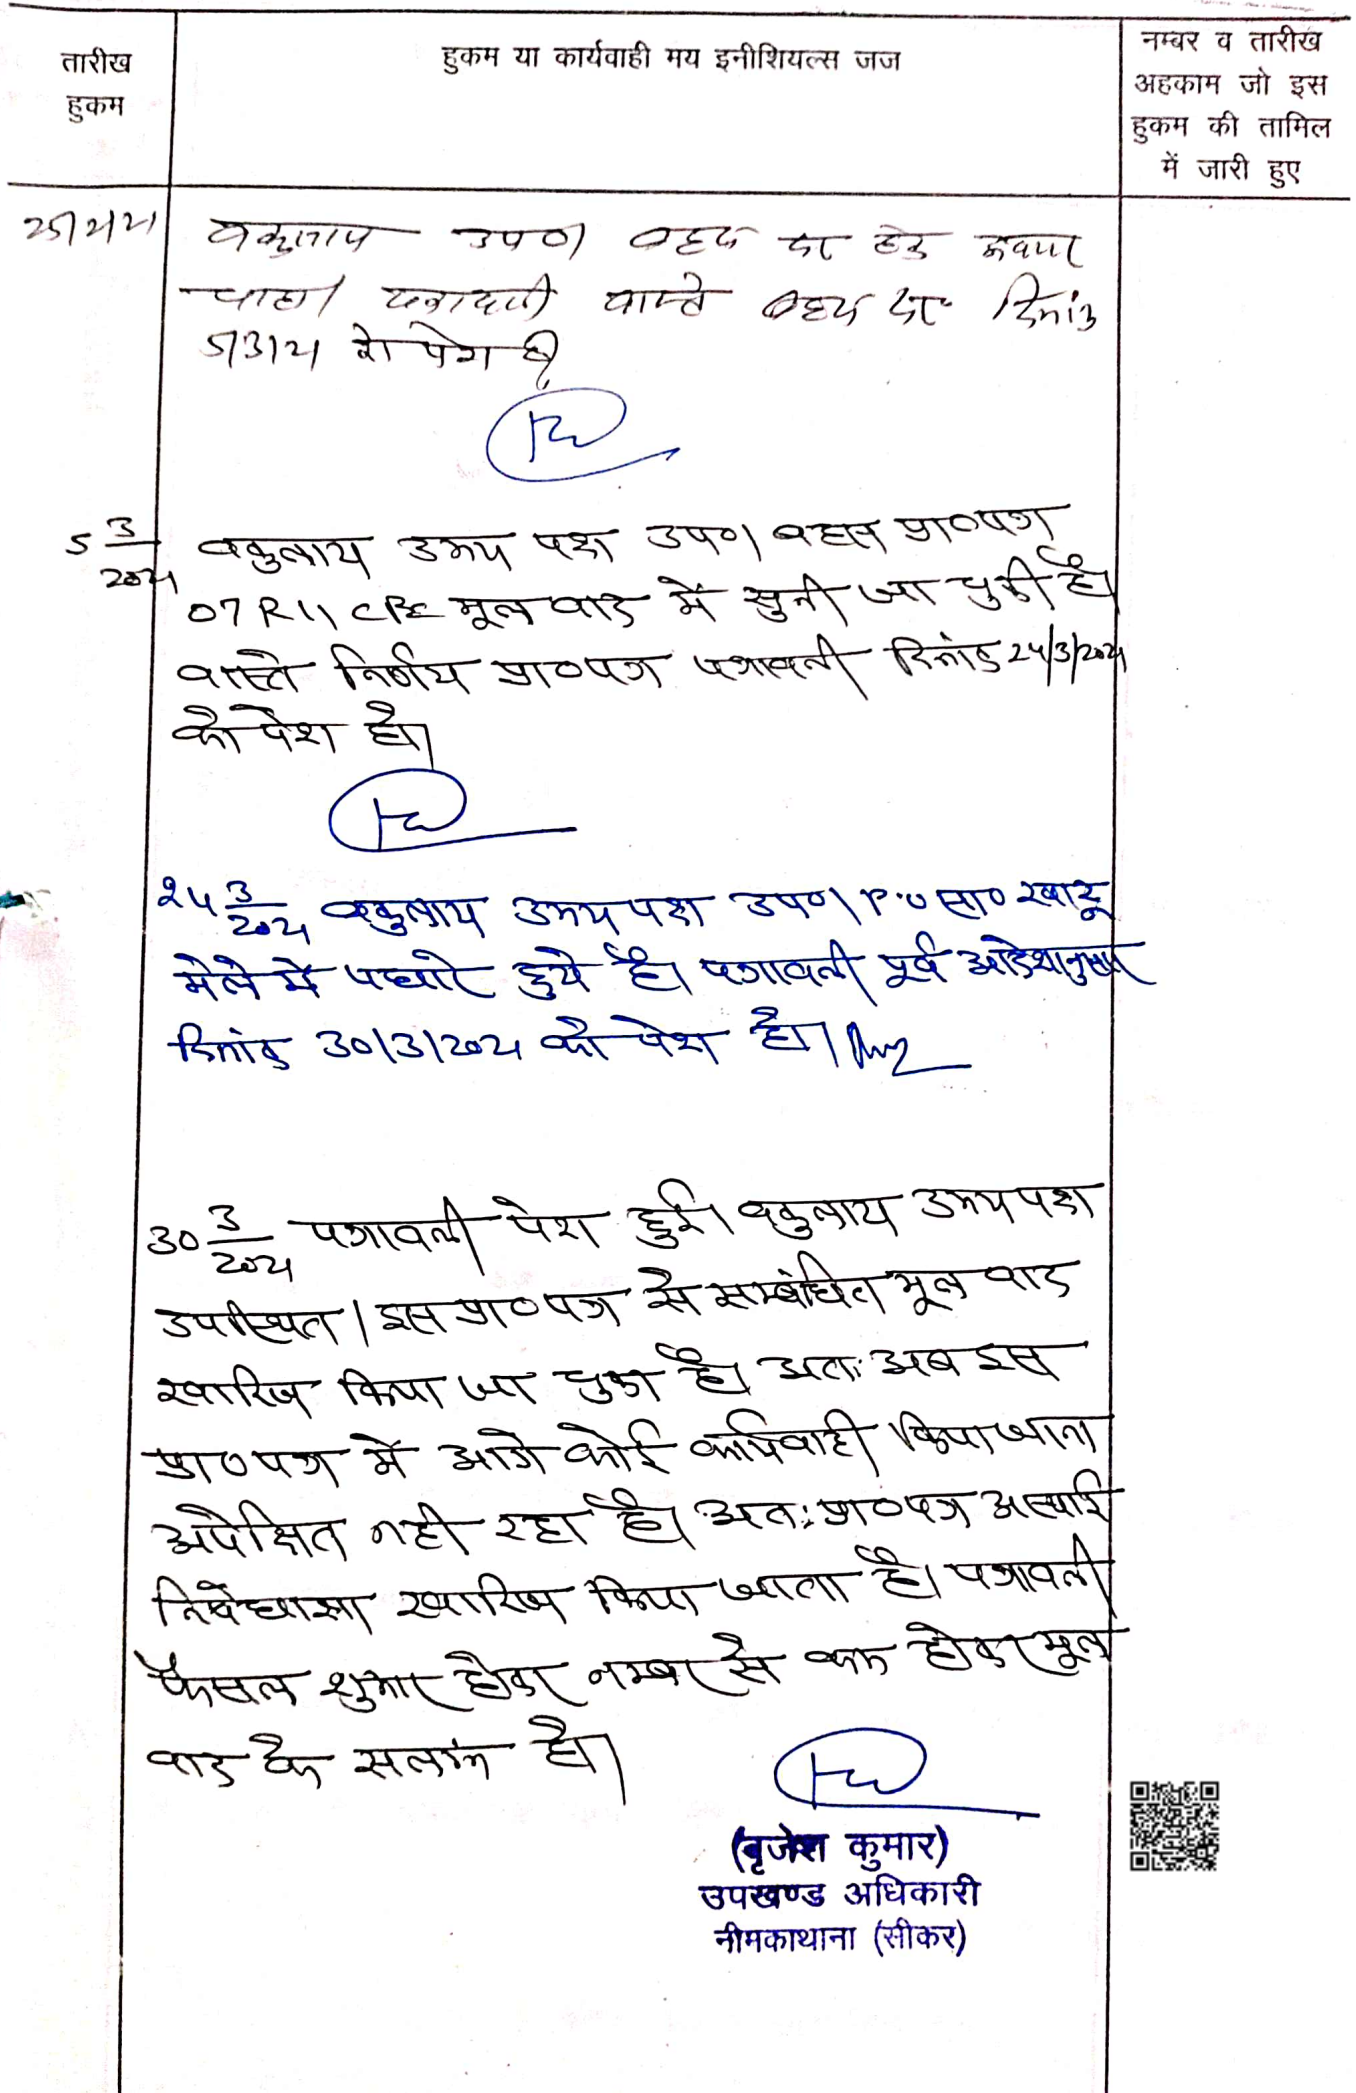 तारीख
हुकम
हुकम या कार्यवाही मय इनीशियल्स जज
नम्बर व तारीख
अहकाम जो इस
हुकम की तामिल
में जारी हुए
वकुलाय उप0। बहस
चाहा। पत्रावली वास्ते बहस दिनांक
5/3/21 को पेश हो
5 3/2021 वकुलाय उभय पक्ष उप0। बहस प्रा०पत्र
07 R11 CPC मूल वाद में सुनी जा चुकी है।
वास्ते निर्णय प्रा०पत्र पत्रावली दिनांक 24/3/2021
को पेश हो।
24 3/2021 वकुलाय उभय पक्ष उप0। P.O सा० खाटू
मेले में पधारे हुये है। पत्रावली पूर्व आदेशानुसार
दिनांक 30/3/2021 को पेश हो।
30 3/2021 पत्रावली पेश हुई। वकुलाय उभय पक्ष
उपस्थित। इस प्रा०पत्र से सम्बंधित मूल वाद
खारिज किया जा चुका है। अतः अब इस
प्रा०पत्र में आगे कोई कार्यवाही किया जाना
अपेक्षित नही रहा है। अतः प्रा०पत्र अस्थाई
निषेधाज्ञा खारिज किया जाता है। पत्रावली
फैसल शुमार होकर नम्बर से कम होकर मूल
वाद के सलंग्न हो।
(बृजेश कुमार)
उपखण्ड अधिकारी
नीमकाथाना (सीकर)